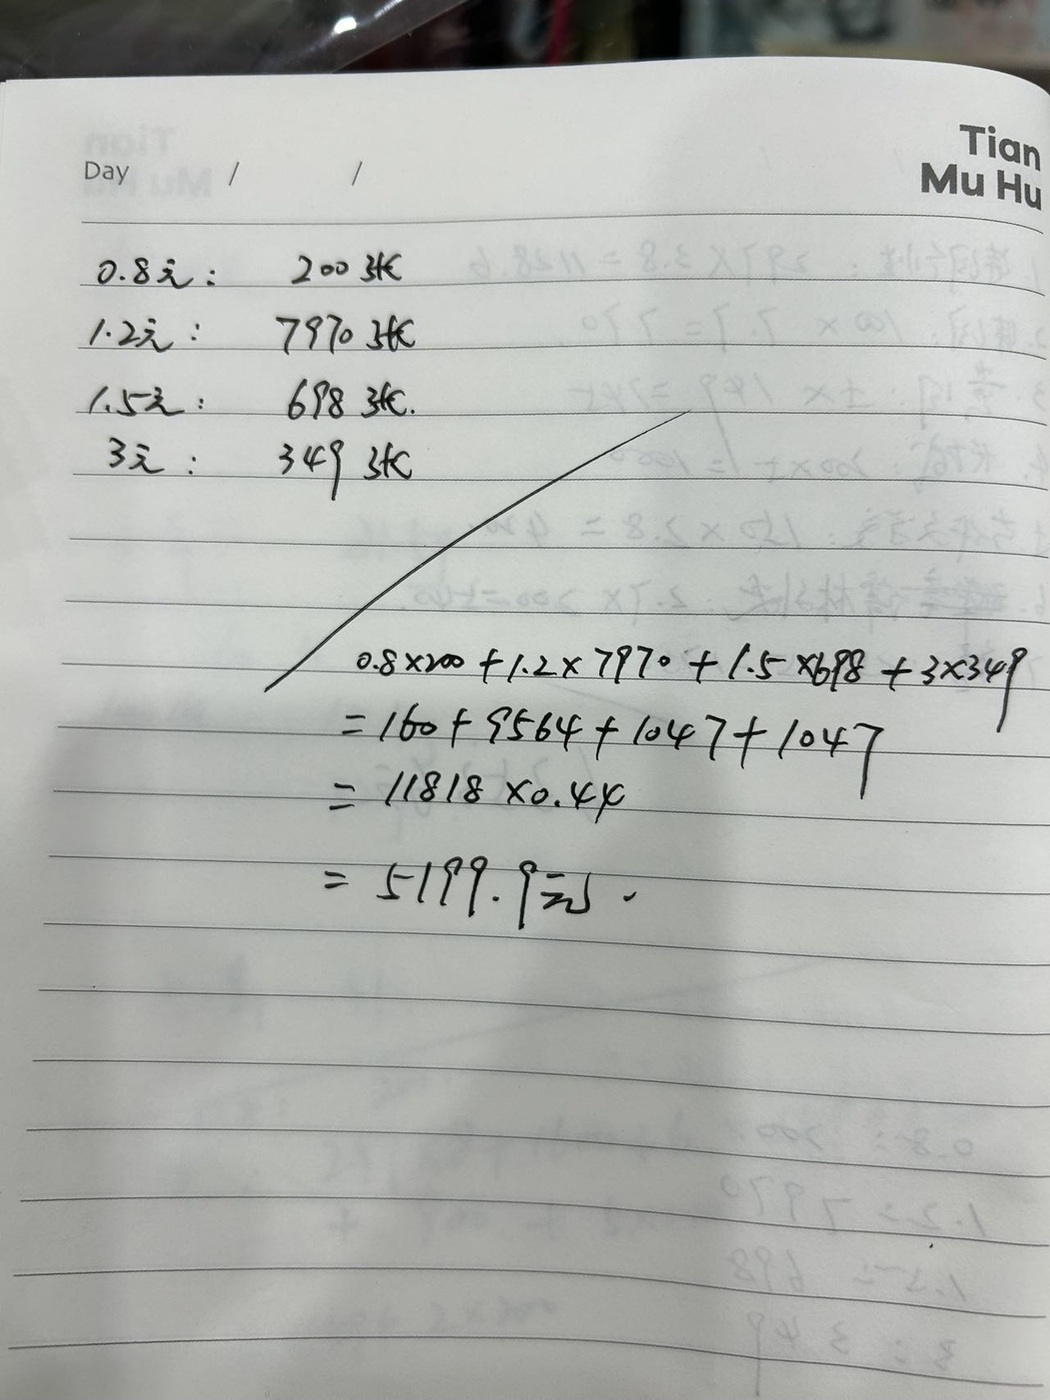 Tian
Mu Hu
Day / /
0.8元： 200张
1.2元： 7970张
1.5元： 698张.
3元： 349张
0.8×200+1.2×7970+1.5×698+3×349
=160+9564+1047+1047
=11818×0.44
=5199.9元.